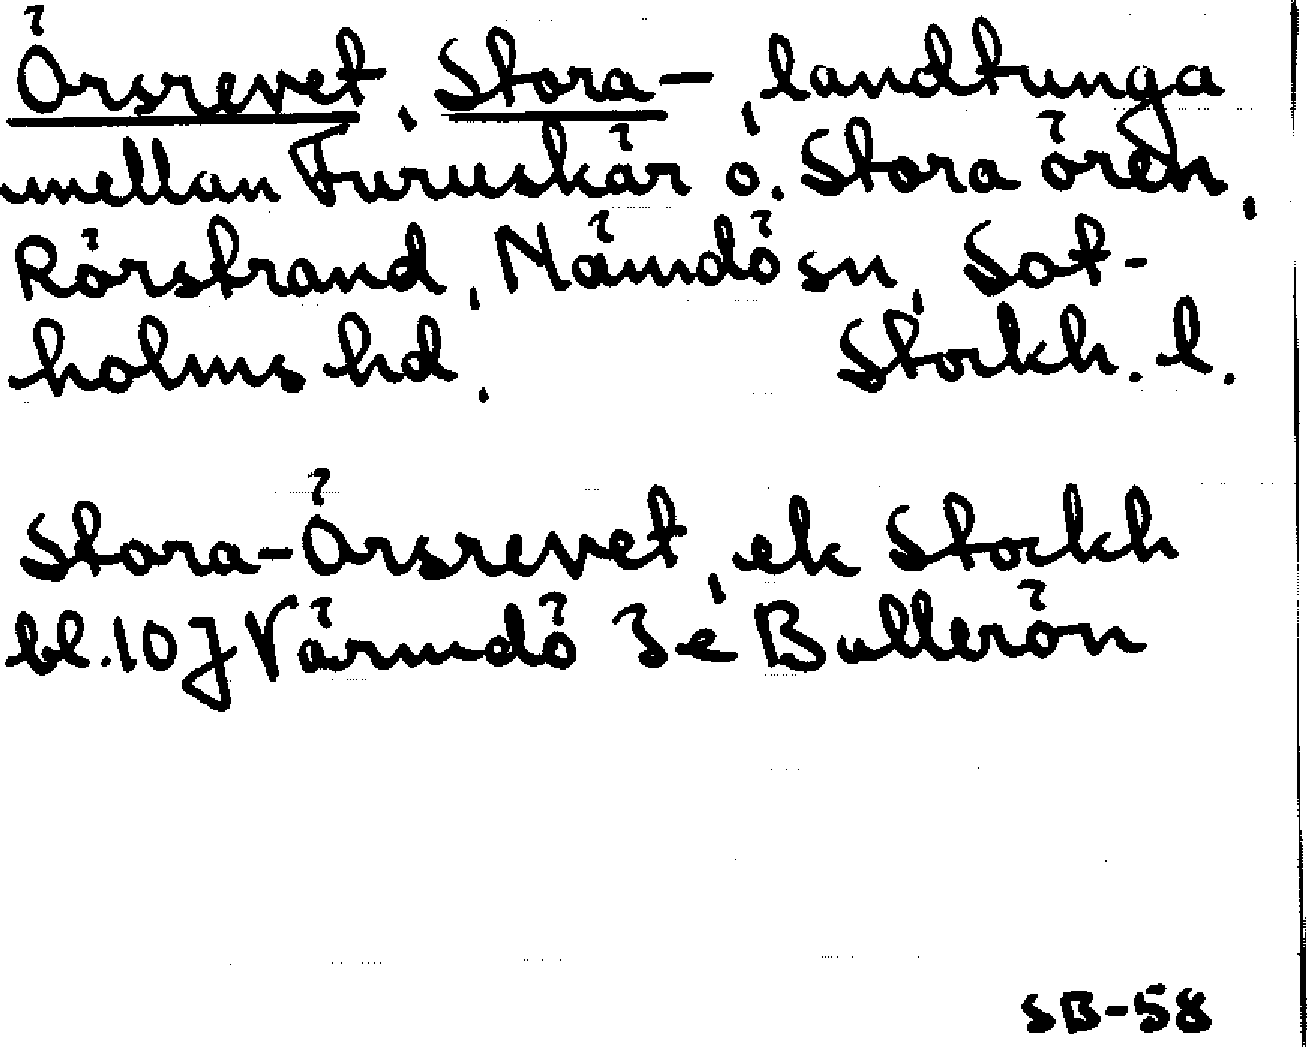 Örsrevet, Stora–, landtunga
mellan Furuskär o. Stora ören,
Rörstrand, Nämdö sn, Sot-
holms hd. Stockh. l.
Stora-Örsrevet, ek Stockh
bl. 10 J Värmdö 3 e Bullerön
SB-58